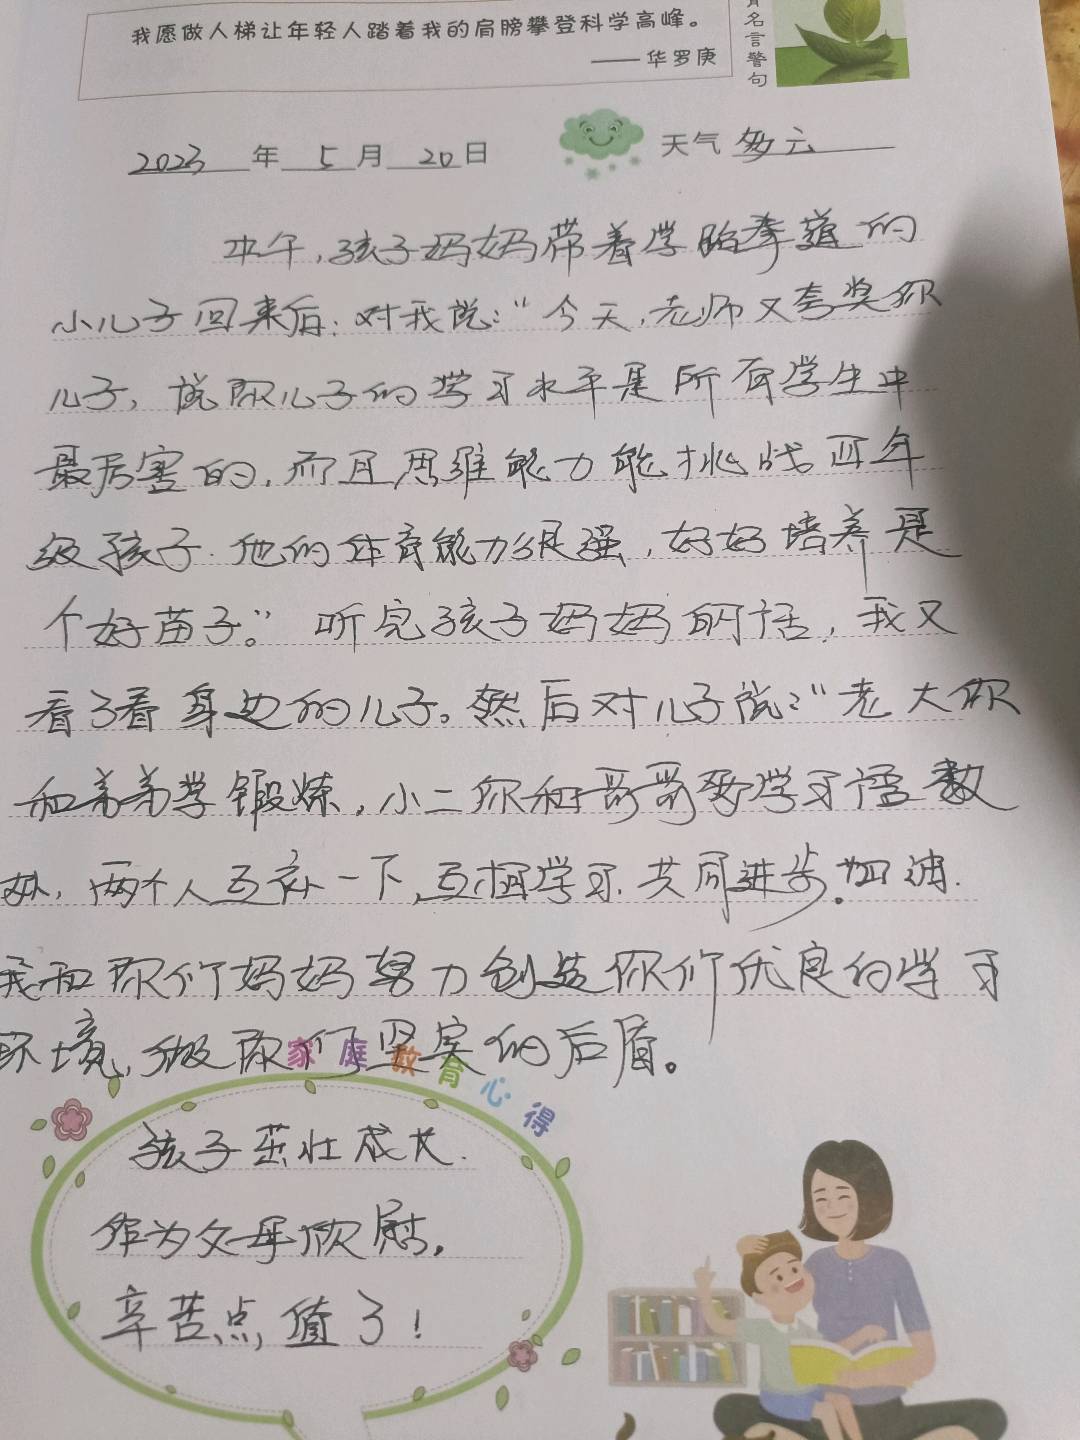 我愿做人梯让年轻人踏着我的肩膀攀登科学高峰。
—— 华罗庚
名言警句
2023年5月20日
天气 多云
中午,孩子妈妈带着学跆拳道的
小儿子回来后:对我说:“今天,老师又夸奖你
儿子,说你儿子的学习水平是所有学生中
最厉害的,而且思维能力能挑战四年
级孩子.他的体育能力很强,好好培养是
个好苗子。”听完孩子妈妈的话,我又
看了看身边的儿子。然后对儿子说:“老大你
和弟弟学锻炼,小二你和哥哥要学习语数
外,两个人互补一下,互相学习.共同进步.加油.
我和你们妈妈努力创造你们优良的学习
环境,做你们坚实的后盾。
家庭教育心得
孩子茁壮成长.
作为父母欣慰,
辛苦点,值了!